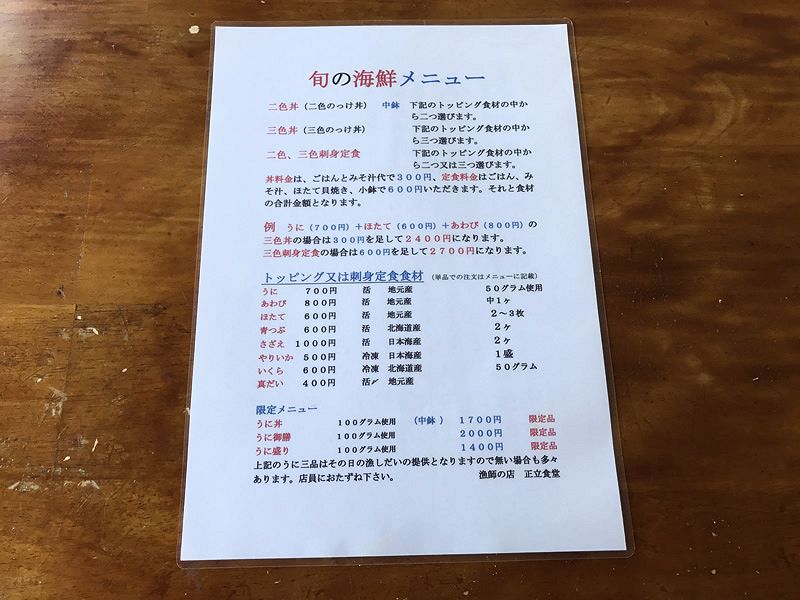 旬の海鮮メニュー
二色丼（二色のっけ丼） 中鉢 下記のトッピング食材の中か
ら二つ選びます。
三色丼（三色のっけ丼） 下記のトッピング食材の中か
ら三つ選びます。
二色、三色刺身定食 下記のトッピング食材の中か
ら二つ又は三つ選びます。
丼料金は、ごはんとみそ汁代で３００円、定食料金はごはん、み
そ汁、ほたて貝焼き、小鉢で６００円いただきます。それと食材
の合計金額となります。
例 うに（７００円）＋ほたて（６００円）＋あわび（８００円）の
三色丼の場合は３００円を足して２４００円になります。
三色刺身定食の場合は６００円を足して２７００円になります。
トッピング又は刺身定食食材（単品での注文はメニューに記載）
うに ７００円 活 地元産 ５０グラム使用
あわび ８００円 活 地元産 中１ヶ
ほたて ６００円 活 地元産 ２～３枚
青つぶ ６００円 活 北海道産 ２ヶ
さざえ １０００円 活 日本海産 ２ヶ
やりいか ５００円 冷凍 日本海産 １盛
いくら ６００円 冷凍 北海道産 ５０グラム
真だい ４００円 活〆 地元産
限定メニュー
うに丼 １００グラム使用 （中鉢） １７００円 限定品
うに御膳 １００グラム使用 ２０００円 限定品
うに盛り １００グラム使用 １４００円 限定品
上記のうに三品はその日の漁しだいの提供となりますので無い場合も多々
あります。店員におたずね下さい。 漁師の店 正立食堂